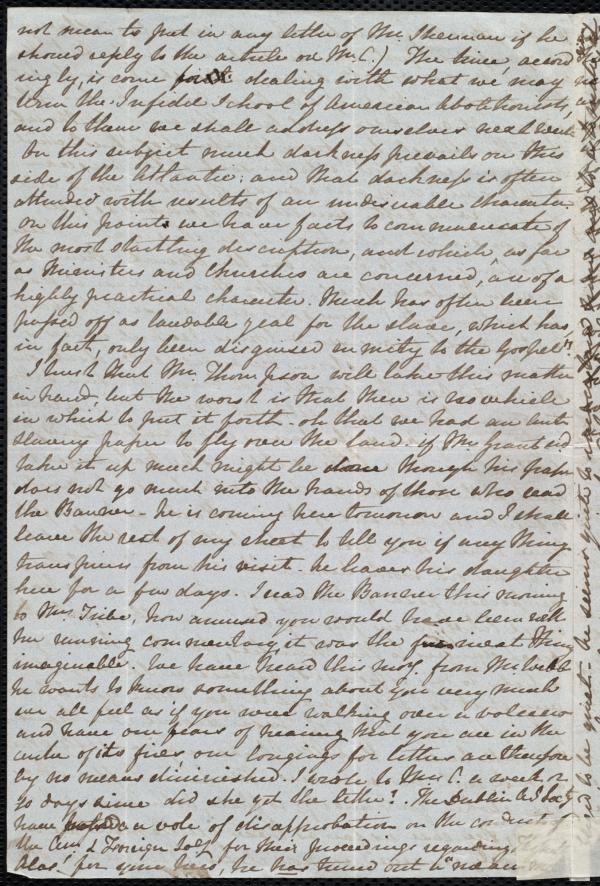 not mean to put in any letter of Mr. Sherman if he
should reply to the article on Mr. C.) The time, accord
ingly, is come for dealing with what we may
term the Infidel School of American Abolitionists,
and to them we shall address ourselves next week
On this subject much darkness prevails on this
side of the Atlantic; and that darkness is often
attended with results of an undesirable character.
on this point we have facts to communicate of
the most startling description, and which, as far
as Ministers and Churches are concerned, are of a
highly practical character. Much has often been
passed off as laudable zeal for the slave, which has,
in fact, only been disguised enmity to the Gospel"
I trust that Mr. Thompson will take this matter
in hand, but the worst is that there is no vehicle
in which to put it forth - oh that we had an anti
slavery paper to fly over the land. if Mr. Grant wd
take it up much might be done though his paper
does not go much into the hands of those who read
the Banner - he is coming here tomorrow and I shall
leave the rest of my sheet to tell you if any thing
transpires from his visit. he leaves his daughter
here for a few days. I read the Banner this morning
to Mrs. Tribe, how amused you would have been with
her running commentary, it was the funniest thing
imaginable. We have heard this morg. from Mr Webb
he wants to know something about you very much
we all feel as if you were walking over a volcano
and have our fears of hearing that you are in the
midst of its fires our longings for letters are therefore
by no means diminished. I wrote to Mrs. C. a week or
10 days since did she get the letter? The Dublin A S Socty
have a vote of disapprobation on the conduct of
the Am. & Foreign Socy for their proceedings regarding
Alas! for your hero, he has turned out